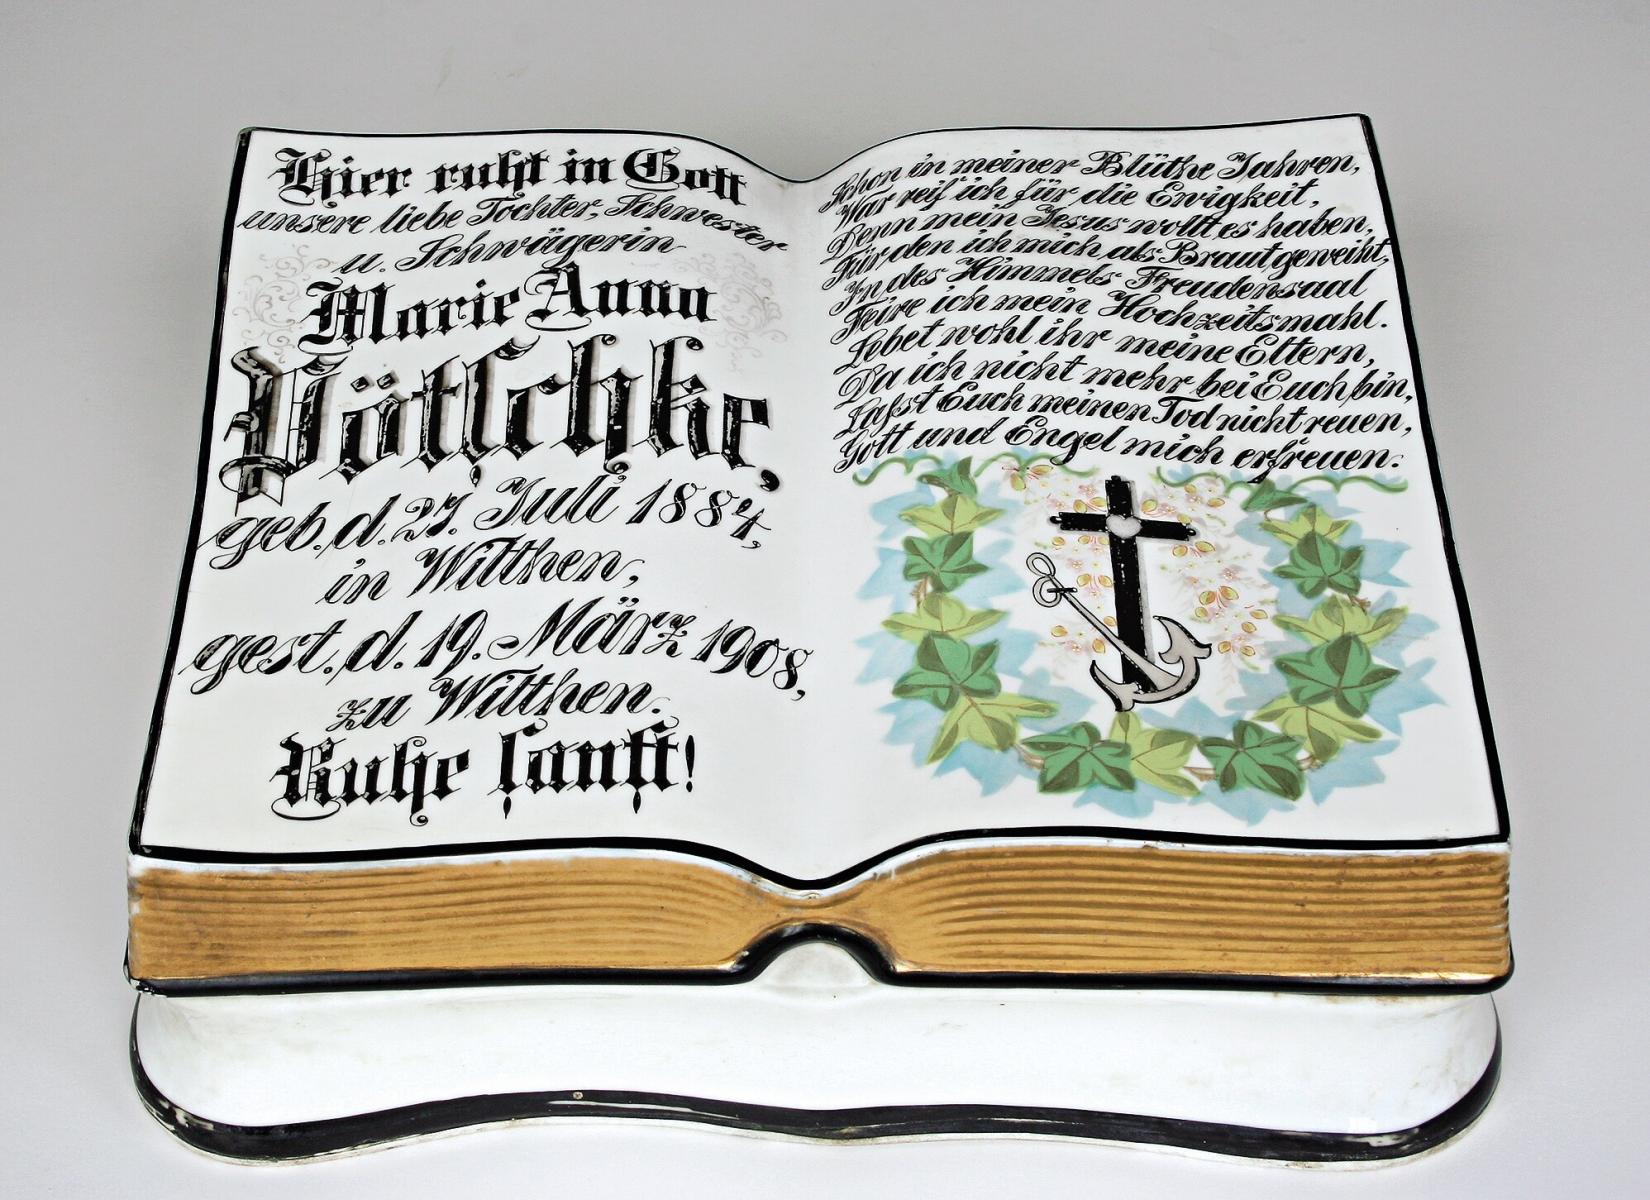 Hier ruht in Gott
unsere liebe Tochter, Schwester
u. Schwägerin
Marie Anna
Pötschke,
geb. d. 27. Juli 1884,
in Wilthen,
gest. d. 19. März 1908,
zu Wilthen.
Ruhe sanft!
Schon in meiner Blüthe Jahren,
War reif ich für die Ewigkeit,
Denn mein Jesus wollt es haben,
Für den ich mich als Braut geweiht,
In des Himmels Freudensaal
Feire ich mein Hochzeitsmahl.
Lebet wohl ihr meine Eltern,
Da ich nicht mehr bei Euch bin,
Laßt Euch meinen Tod nicht reuen,
Gott und Engel mich erfreuen.